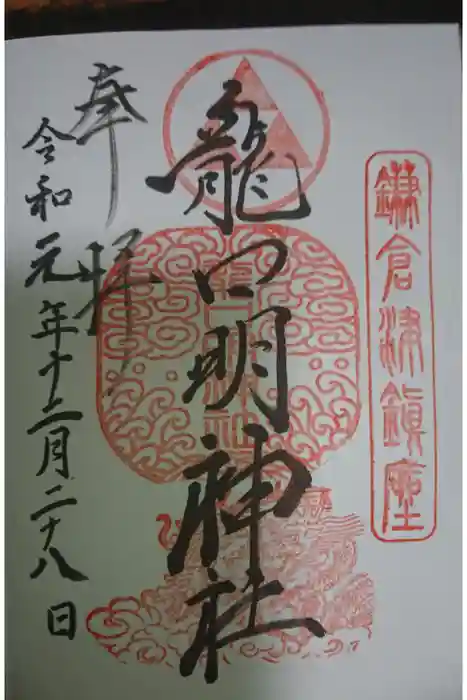 鎌倉津鎮座
龍口明神社
奉拝
令和元年十二月二十八日